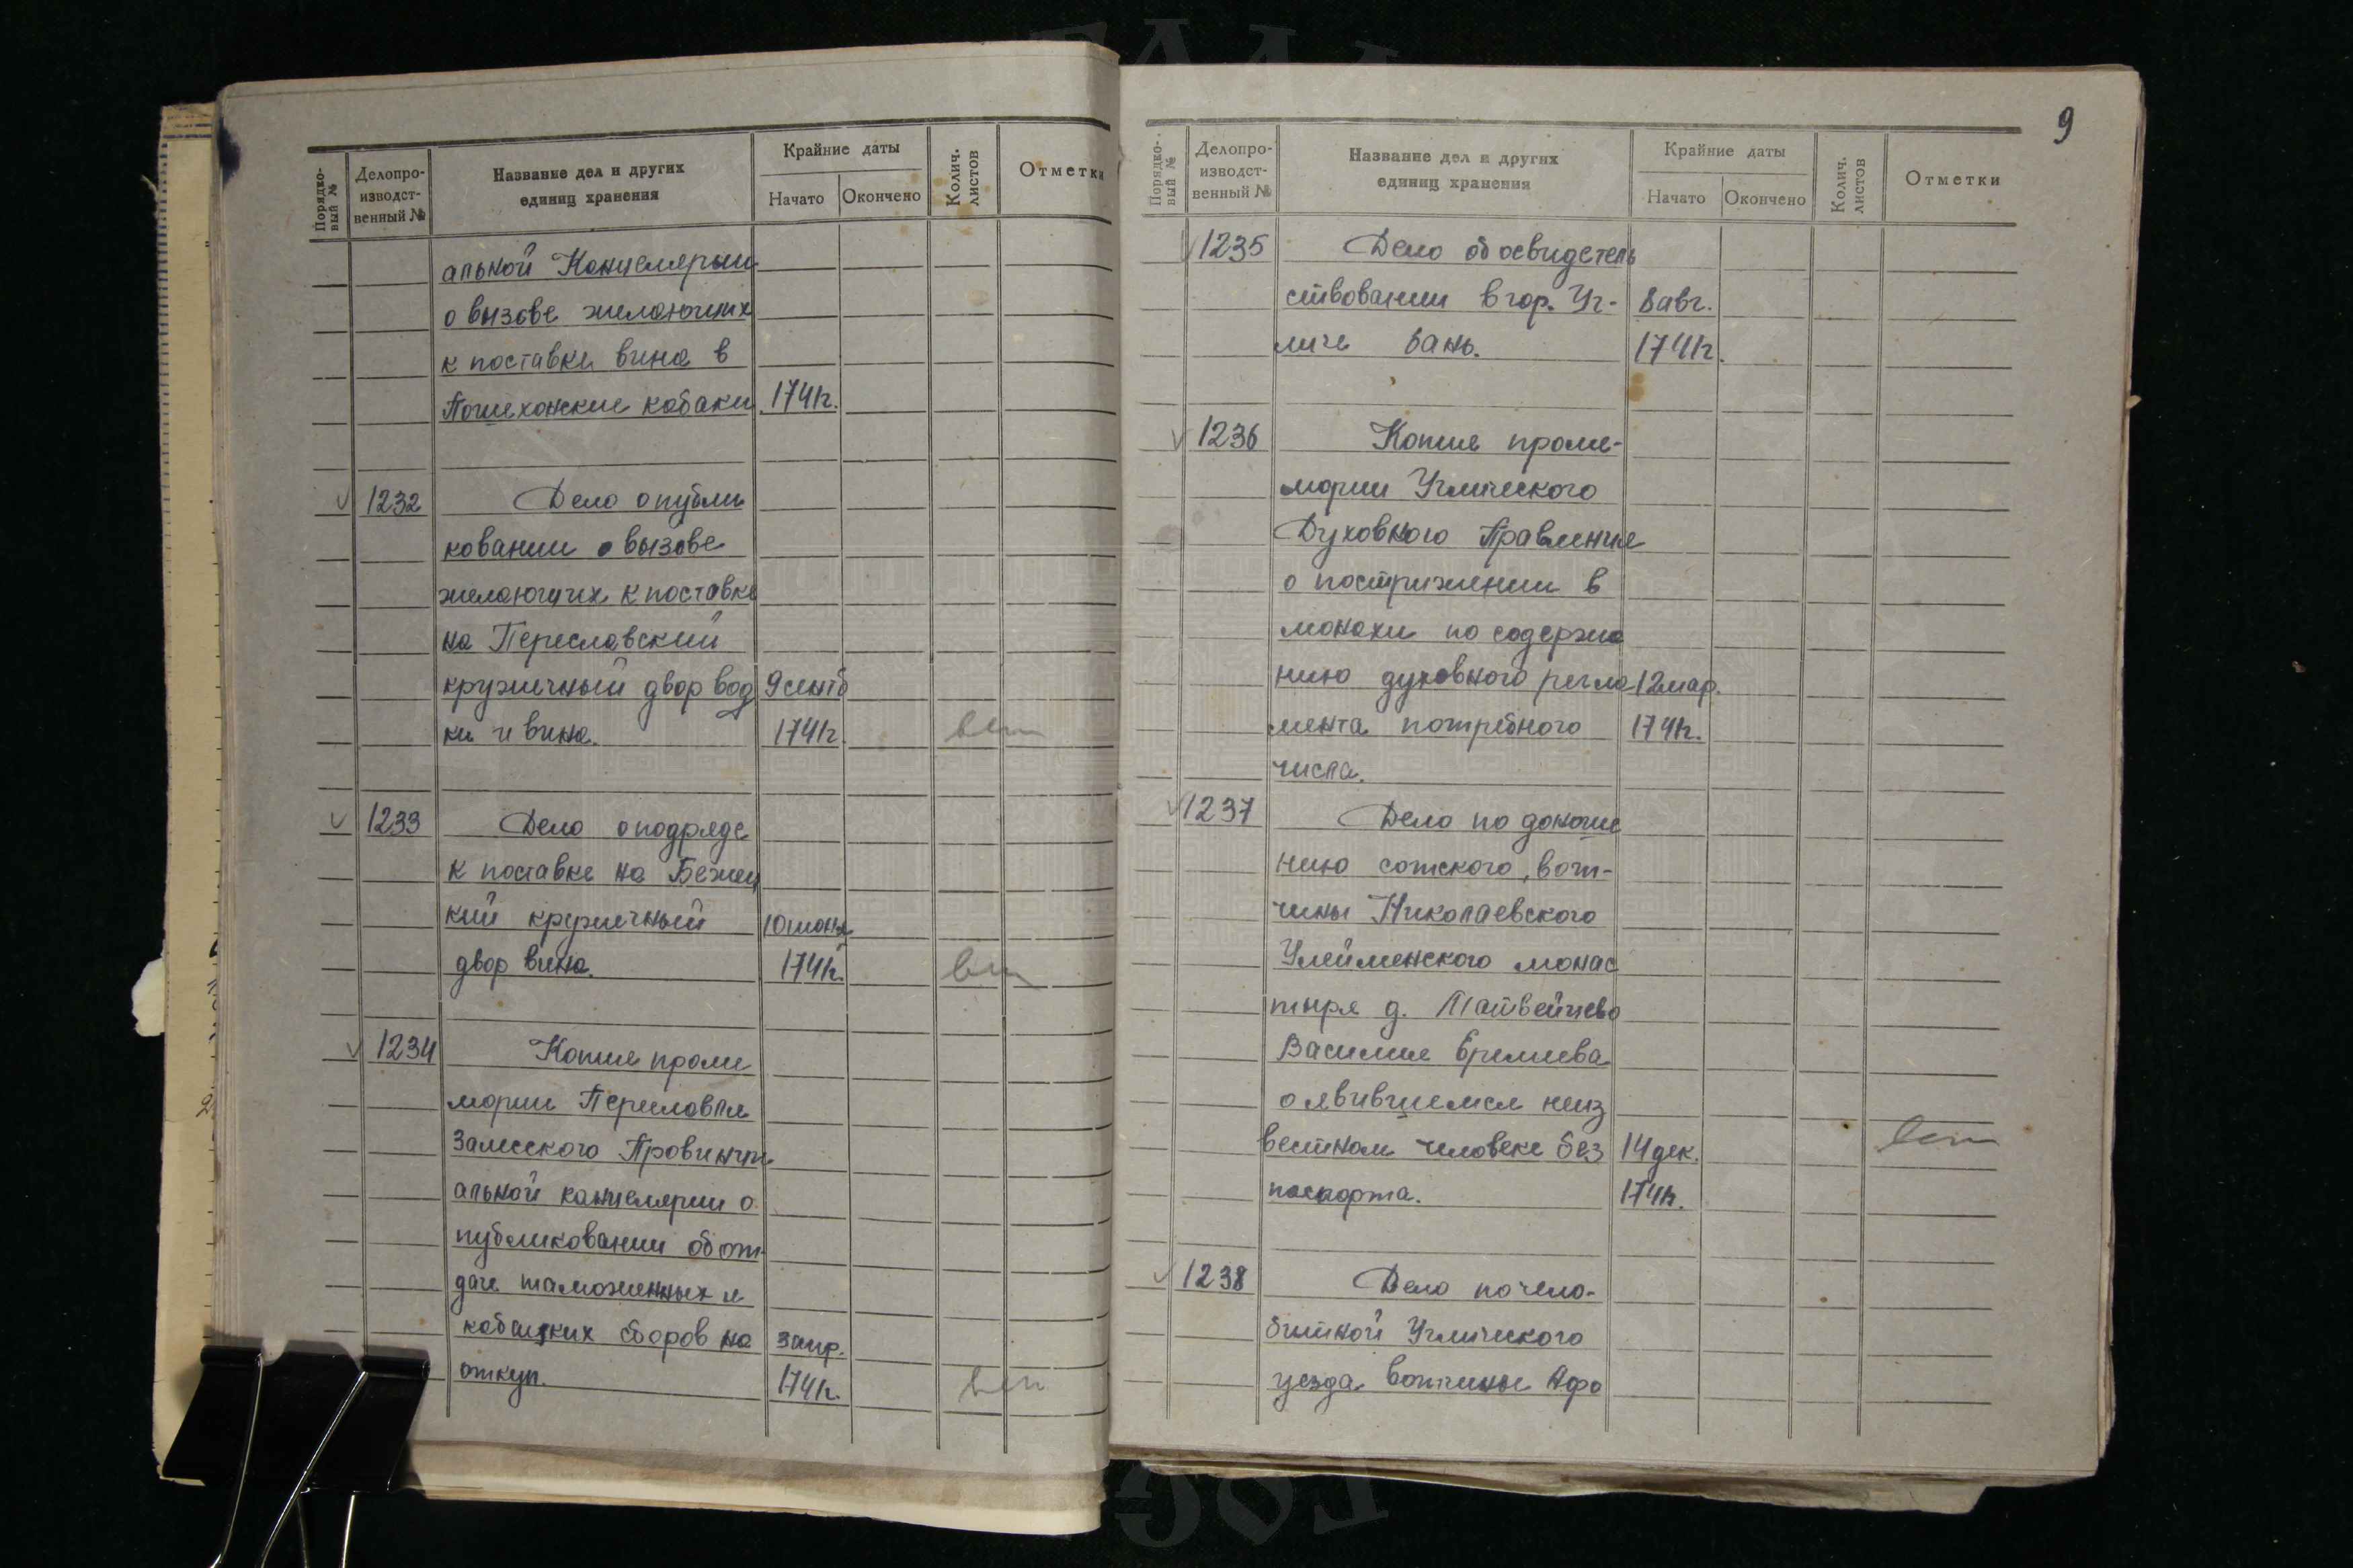 Порядко-
вый №
Делопро-
изводст-
венный №
Название дел и других
единиц хранения
Крайние даты
Начато
Окончено
Колич.
листов
Отметки
альной Канцелярии
о вызове желающих
к поставке вина в
Пошехонские кабаки 1741г.
1232 Дело о публи
ковании о вызове
желающих к поставке
на Переславский
кружечный двор вод 9 сентб
ки и вина. 1741г.
1233 Дело о подряде
к поставке на Бежец
кий кружечный 10 июня
двор вина. 1741г.
1234 Копия проме
мории Переславля
Залесского Провинци
альной канцелярии о
публиковании об от-
даче таможенных и
кабацких сборов на 3 апр.
откуп. 1741г.
9
Порядко-
вый №
Делопро-
изводст-
венный №
Название дел и других
единиц хранения
Крайние даты
Начато
Окончено
Колич.
листов
Отметки
1235 Дело об освидетель
ствовании в гор. Уг- 8 авг.
личе бань. 1741г.
1236 Копия проме-
мории Угличского
Духовного Правления
о пострижении в
монахи по содержа
нию духовного регла- 12 мар.
мента потребного 1741г.
числа.
1237 Дело по доноше
нию сотского, вот-
чины Николаевского
Улейменского монас
тыря д. Матвейцево
Василия Еремеева
о явившемся неиз
вестном человеке без 14 дек.
паспорта. 1741г.
1238 Дело по чело-
битной Угличского
уезда вотчины Афо